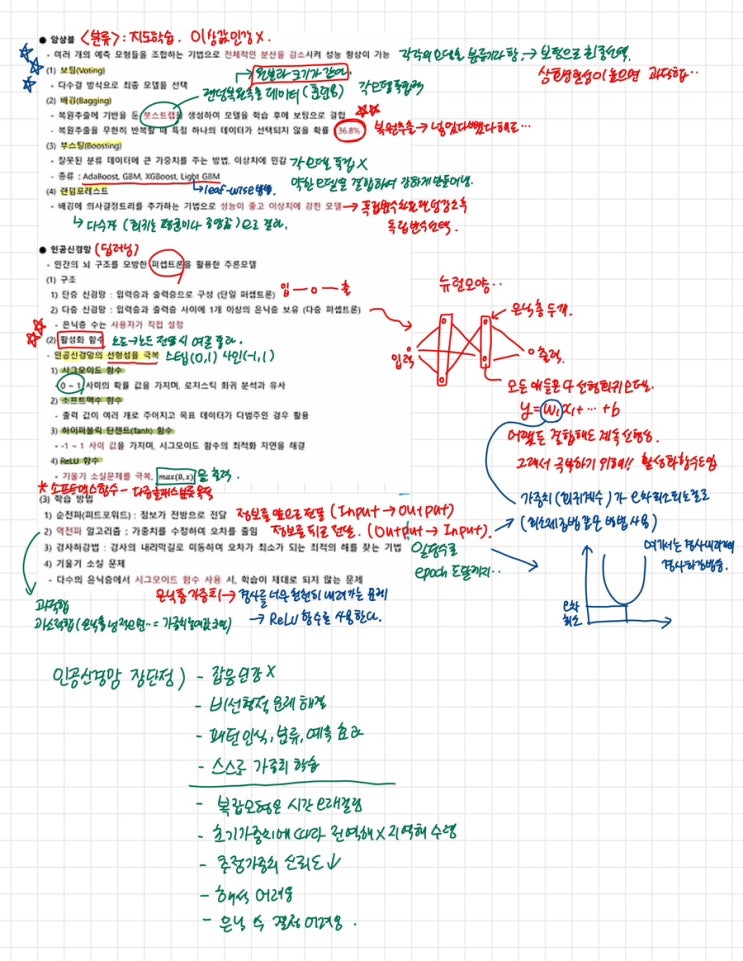 ● 앙상블 <분류> : 지도학습. 이상값 민감 X.
- 여러 개의 예측 모형들을 조합하는 기법으로 전체적인 분산을 감소시켜 성능 향상이 가능
각각의 모델을 분류기라 함. → 보팅으로 최종선택.
상호연관성이 높으면 과적합..
(1) 보팅(Voting)
- 다수결 방식으로 최종 모델을 선택
원본과 크기가 같아
랜덤복원추출 데이터 (훈련용) 각 모델 독립적
(2) 배깅(Bagging)
- 복원추출에 기반을 둔 붓스트랩을 생성하여 모델을 학습 후에 보팅으로 결합
- 복원추출을 무한히 반복할 때 특정 하나의 데이터가 선택되지 않을 확률 36.8%
복원추출 → 넣었다뺐다 해도…
(3) 부스팅(Boosting)
- 잘못된 분류 데이터에 큰 가중치를 주는 방법, 이상치에 민감 각 모델 독립 X
- 종류 : AdaBoost, GBM, XGBoost, Light GBM
약한 모델을 결합하여 강하게 만들어냄.
→ leaf-wise 방법.
(4) 랜덤포레스트
- 배깅에 의사결정트리를 추가하는 기법으로 성능이 좋고 이상치에 강한 모델
→ 다수결 (회귀는 평균이나 중앙값) 으로 결과.
독립변수 선택.
● 인공신경망 (딥러닝)
- 인간의 뇌 구조를 모방한 퍼셉트론을 활용한 추론모델
(1) 구조
1) 단층 신경망 : 입력층과 출력층으로 구성 (단일 퍼셉트론) 입 — o — 출
2) 다층 신경망 : 입력층과 출력층 사이에 1개 이상의 은닉층 보유 (다층 퍼셉트론)
- 은닉층 수는 사용자가 직접 설정
뉴런모양..
은닉층 두개.
입력
출력.
(2) 활성화 함수 노드→노드 전달 시 여길 통과.
- 인공신경망의 선형성을 극복 스텝(0,1) 사인(-1,1)
1) 시그모이드 함수
- 0 ~ 1 사이의 확률 값을 가지며, 로지스틱 회귀 분석과 유사
2) 소프트맥스 함수
- 출력 값이 여러 개로 주어지고 목표 데이터가 다범주인 경우 활용
3) 하이퍼볼릭 탄젠트(Tanh) 함수
- -1 ~ 1 사이 값을 가지며, 시그모이드 함수의 최적화 지연을 해결
4) ReLU 함수
- 기울기 소실문제를 극복, max(0,x) 을 출력.
모든 애들은 다 선형회귀모델.
y = w₁x₁ + … + b
어떻든 결합해도 계속 선형성.
그래서 극복하기 위해!! 활성화함수도입
* 소프트맥스함수 - 다중클래스분류 목적
(3) 학습 방법
1) 순전파(피드포워드) : 정보가 전방으로 전달 정보를 앞으로 전달 (Input → Output)
2) 역전파 알고리즘 : 가중치를 수정하여 오차를 줄임 정보를 뒤로 전달. (Output → Input).
3) 경사하강법 : 경사의 내리막길로 이동하여 오차가 최소가 되는 최적의 해를 찾는 기법
4) 기울기 소실 문제
- 다수의 은닉층에서 시그모이드 함수 사용 시, 학습이 제대로 되지 않는 문제
가중치 (회귀계수) 가 e 최소 되는 걸로
(최소제곱법 같은 방법 사용)
일정수로
epoch 도달까지..
여기서는 경사내려가며
경사하강법을.
e와
최소
은닉층 가중치 → 경사를 너무 천천히 내려가는 문제
→ ReLU 함수를 사용한다.
과적합
인공신경망 장단점) - 잡음 민감 X
- 비선형적 문제 해결
- 패턴인식, 분류, 예측 효과
- 스스로 가중치 학습
- 복잡모형은 시간 오래걸림
- 초기가중치에 따라 전역해 X 지역해 수렴
- 추정가중치 신뢰도 ↓
- 해석 어려움
- 은닉 수 결정 어려움.